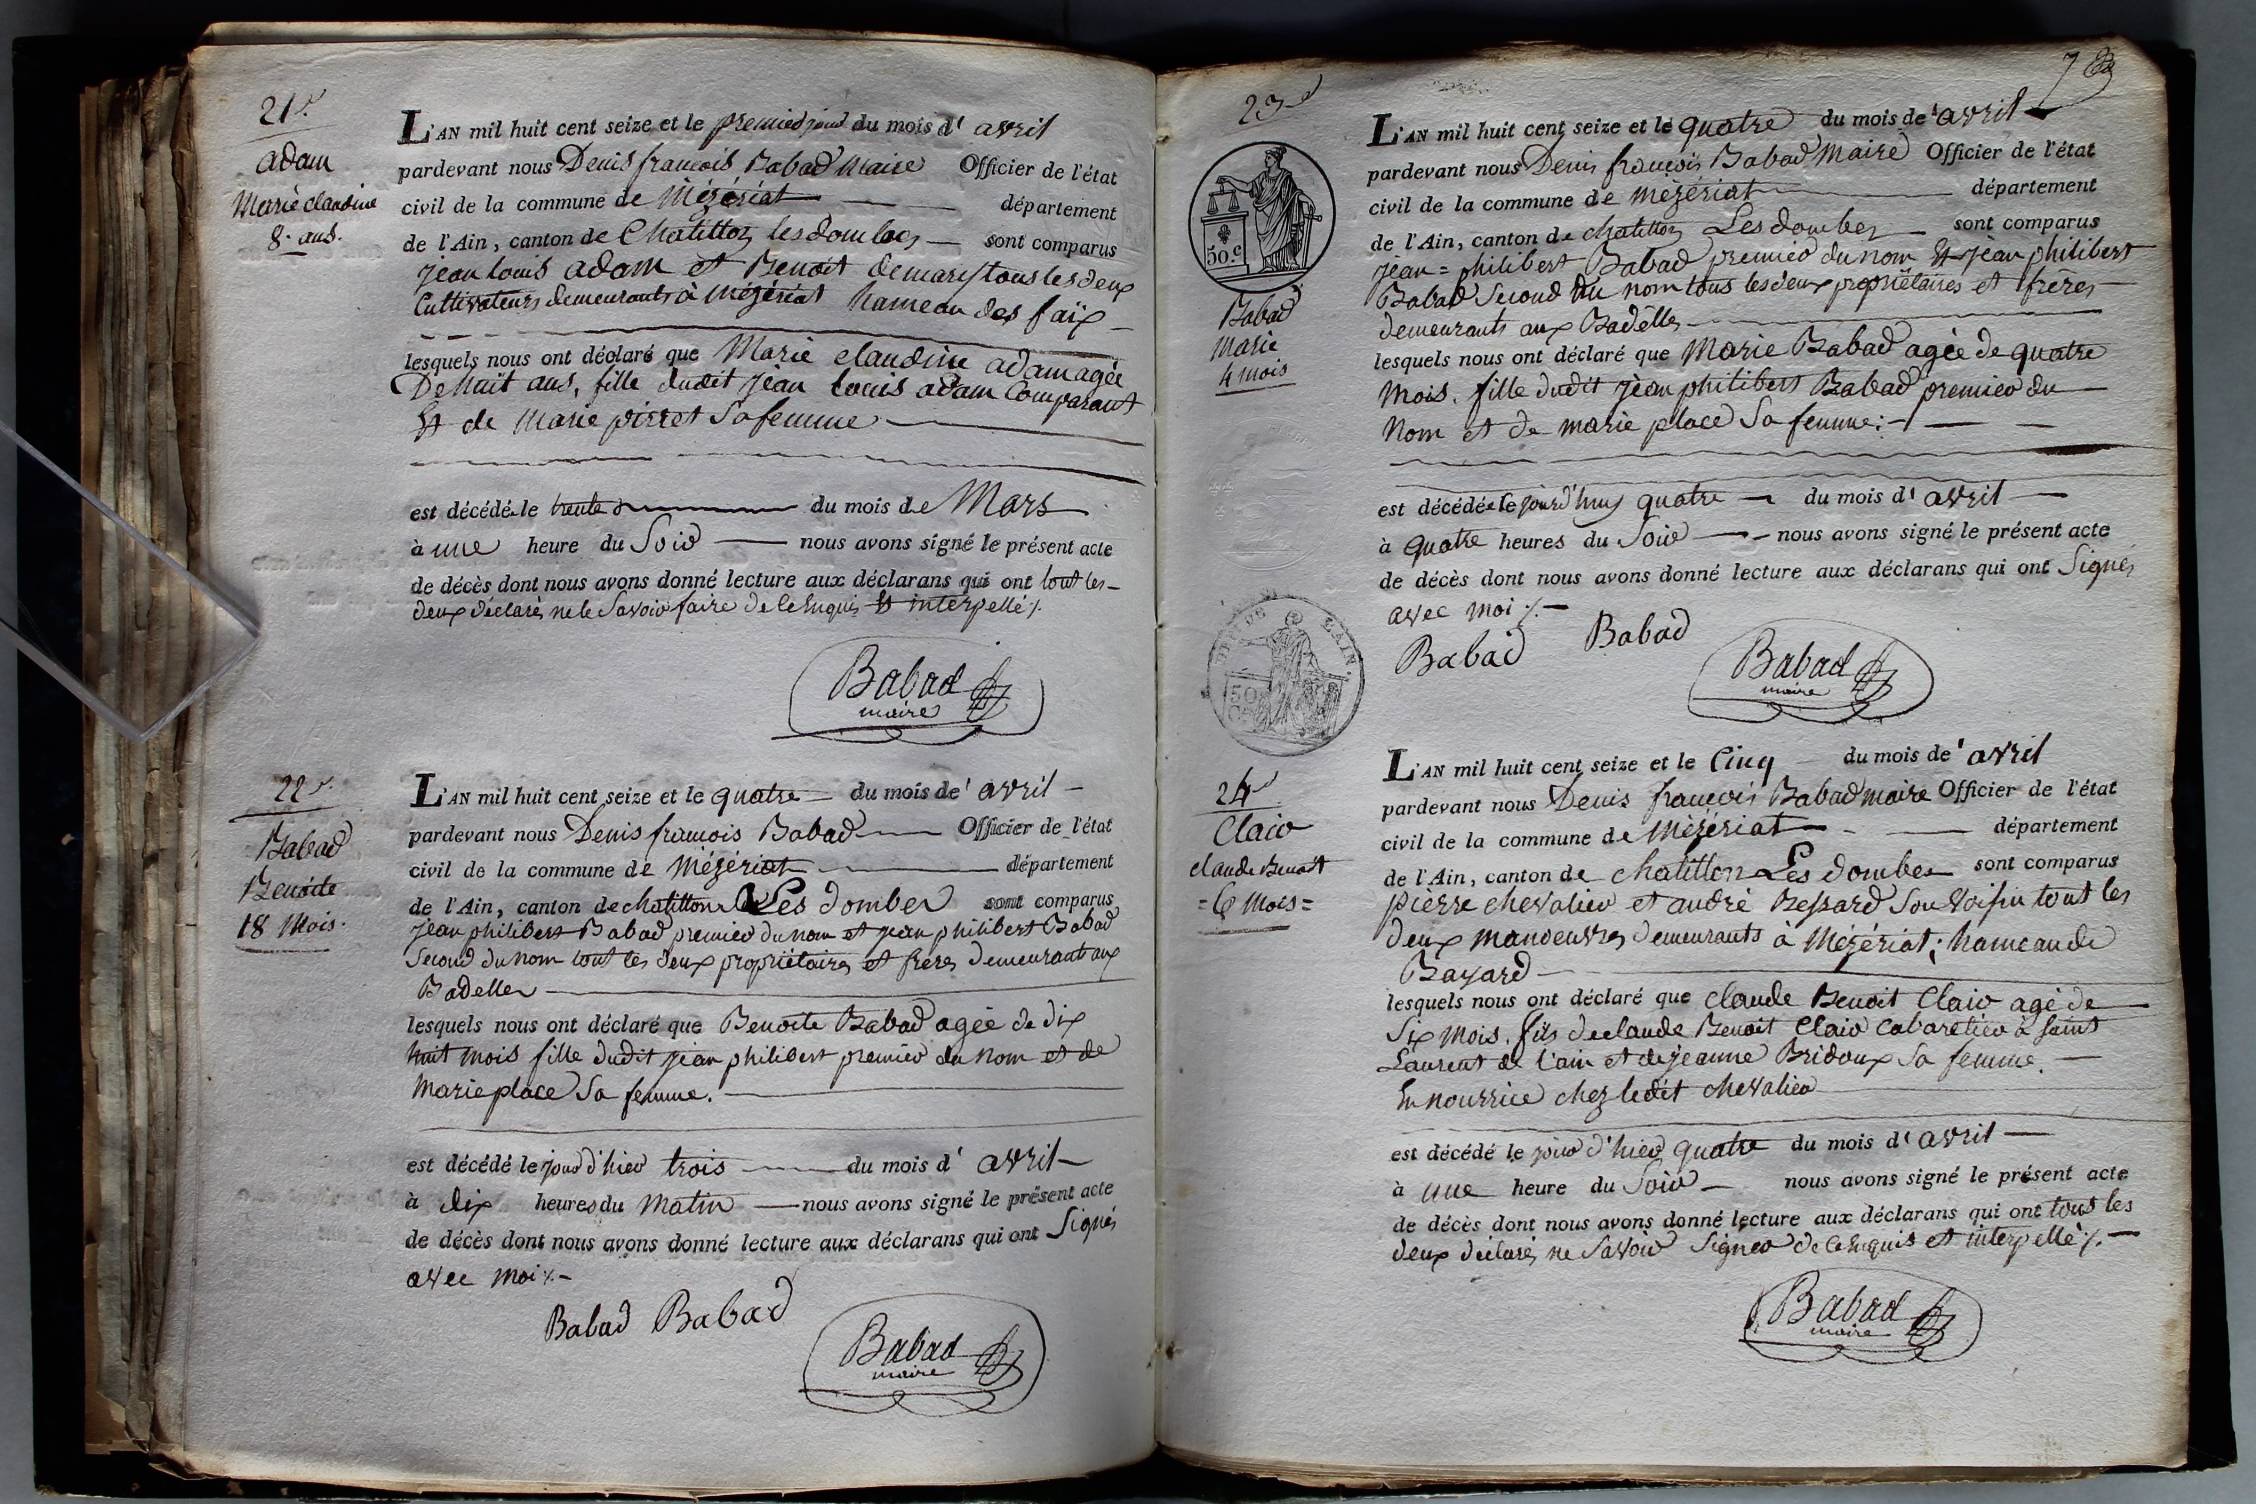 21e.
adam
Marie claudine
8. ans.
L'AN mil huit cent seize et le premier jour du mois d' avril
pardevant nous Denis francois Babad Maire Officier de l'état
civil de la commune de Mézériat département
de l'Ain, canton de Chatillon les dombes sont comparus
jean Louis adam et Benoit demares tous les deux
Cultivateurs demeurants à Mézériat hameau des faix
lesquels nous ont déclaré que Marie claudine adam agée
De huit ans, fille dudit jean Louis adam Comparant
Et de Marie pirret Sa femme
est décédé le trente du mois de Mars
à une heure du Soir nous avons signé le présent acte
de décès dont nous avons donné lecture aux déclarans qui ont tout les
deux déclarés ne le Savoir faire de ce Enquis Et interpellé ./.
Babad
maire
22e.
Babad
Benoite
18 Mois.
L'AN mil huit cent seize et le quatre du mois de' avril
pardevant nous Denis francois Babad Officier de l'état
civil de la commune de Mézériat département
de l'Ain, canton de chatillon Les dombes sont comparus
jean philibert Babad premier du nom et jean philibert Babad
Second du nom tout les deux propriétaires et freres demeurant aux
Badelles
lesquels nous ont déclaré que Benoite Babad agée de dix
huit mois fille dudit jean philibert premier du nom et de
Marie place Sa femme.
est décédé le jour d'hier trois du mois d' avril
à dix heures du Matin nous avons signé le présent acte
de décès dont nous avons donné lecture aux déclarans qui ont Signés
avec moi ./.
Babad Babad
Babad
maire
78
23e
50.c
Babad
Marie
4 mois
L'AN mil huit cent seize et le quatre du mois de' avril
pardevant nous Denis francois Babad Maire Officier de l'état
civil de la commune de mézériat département
de l'Ain, canton de chatillon Les dombes sont comparus
jean = philibert Babad premier du nom Et jean philibert
Babad Second du nom tous les deux propriétaires et frères
demeurants aux Badelles
lesquels nous ont déclaré que Marie Babad agée de quatre
Mois. fille dudit jean philibert Babad premier du
Nom et de marie place Sa femme :
est décédée le jourd'huy quatre du mois d' avril
à quatre heures du Soir nous avons signé le présent acte
de décès dont nous avons donné lecture aux déclarans qui ont Signés
avec moi ./.
Babad Babad
Babad
maire
24e
Clair
claude Benoit
= 6 Mois =
L'AN mil huit cent seize et le Cinq du mois de' avril
pardevant nous Denis francois Babad maire Officier de l'état
civil de la commune de Mézériat département
de l'Ain, canton de chatillon Les dombes sont comparus
pierre chevalier et andré Bessard Son Voisin tout les
deux manoeuvres demeurants à Mézériat ; hameau de
Bayard
lesquels nous ont déclaré que claude Benoit Clair agé de
Six mois. fils de claude Benoit Clair Cabaretier à Saint
Laurent de l'ain et de jeanne Bridoux Sa femme.
En nourrice chez ledit chevalier
est décédé le jour d'hier quatre du mois d' avril
à une heure du Soir nous avons signé le présent acte
de décès dont nous avons donné lecture aux déclarans qui ont tous les
deux déclarés ne Savoir Signer de ce Enquis et interpellé ./.
Babad
maire